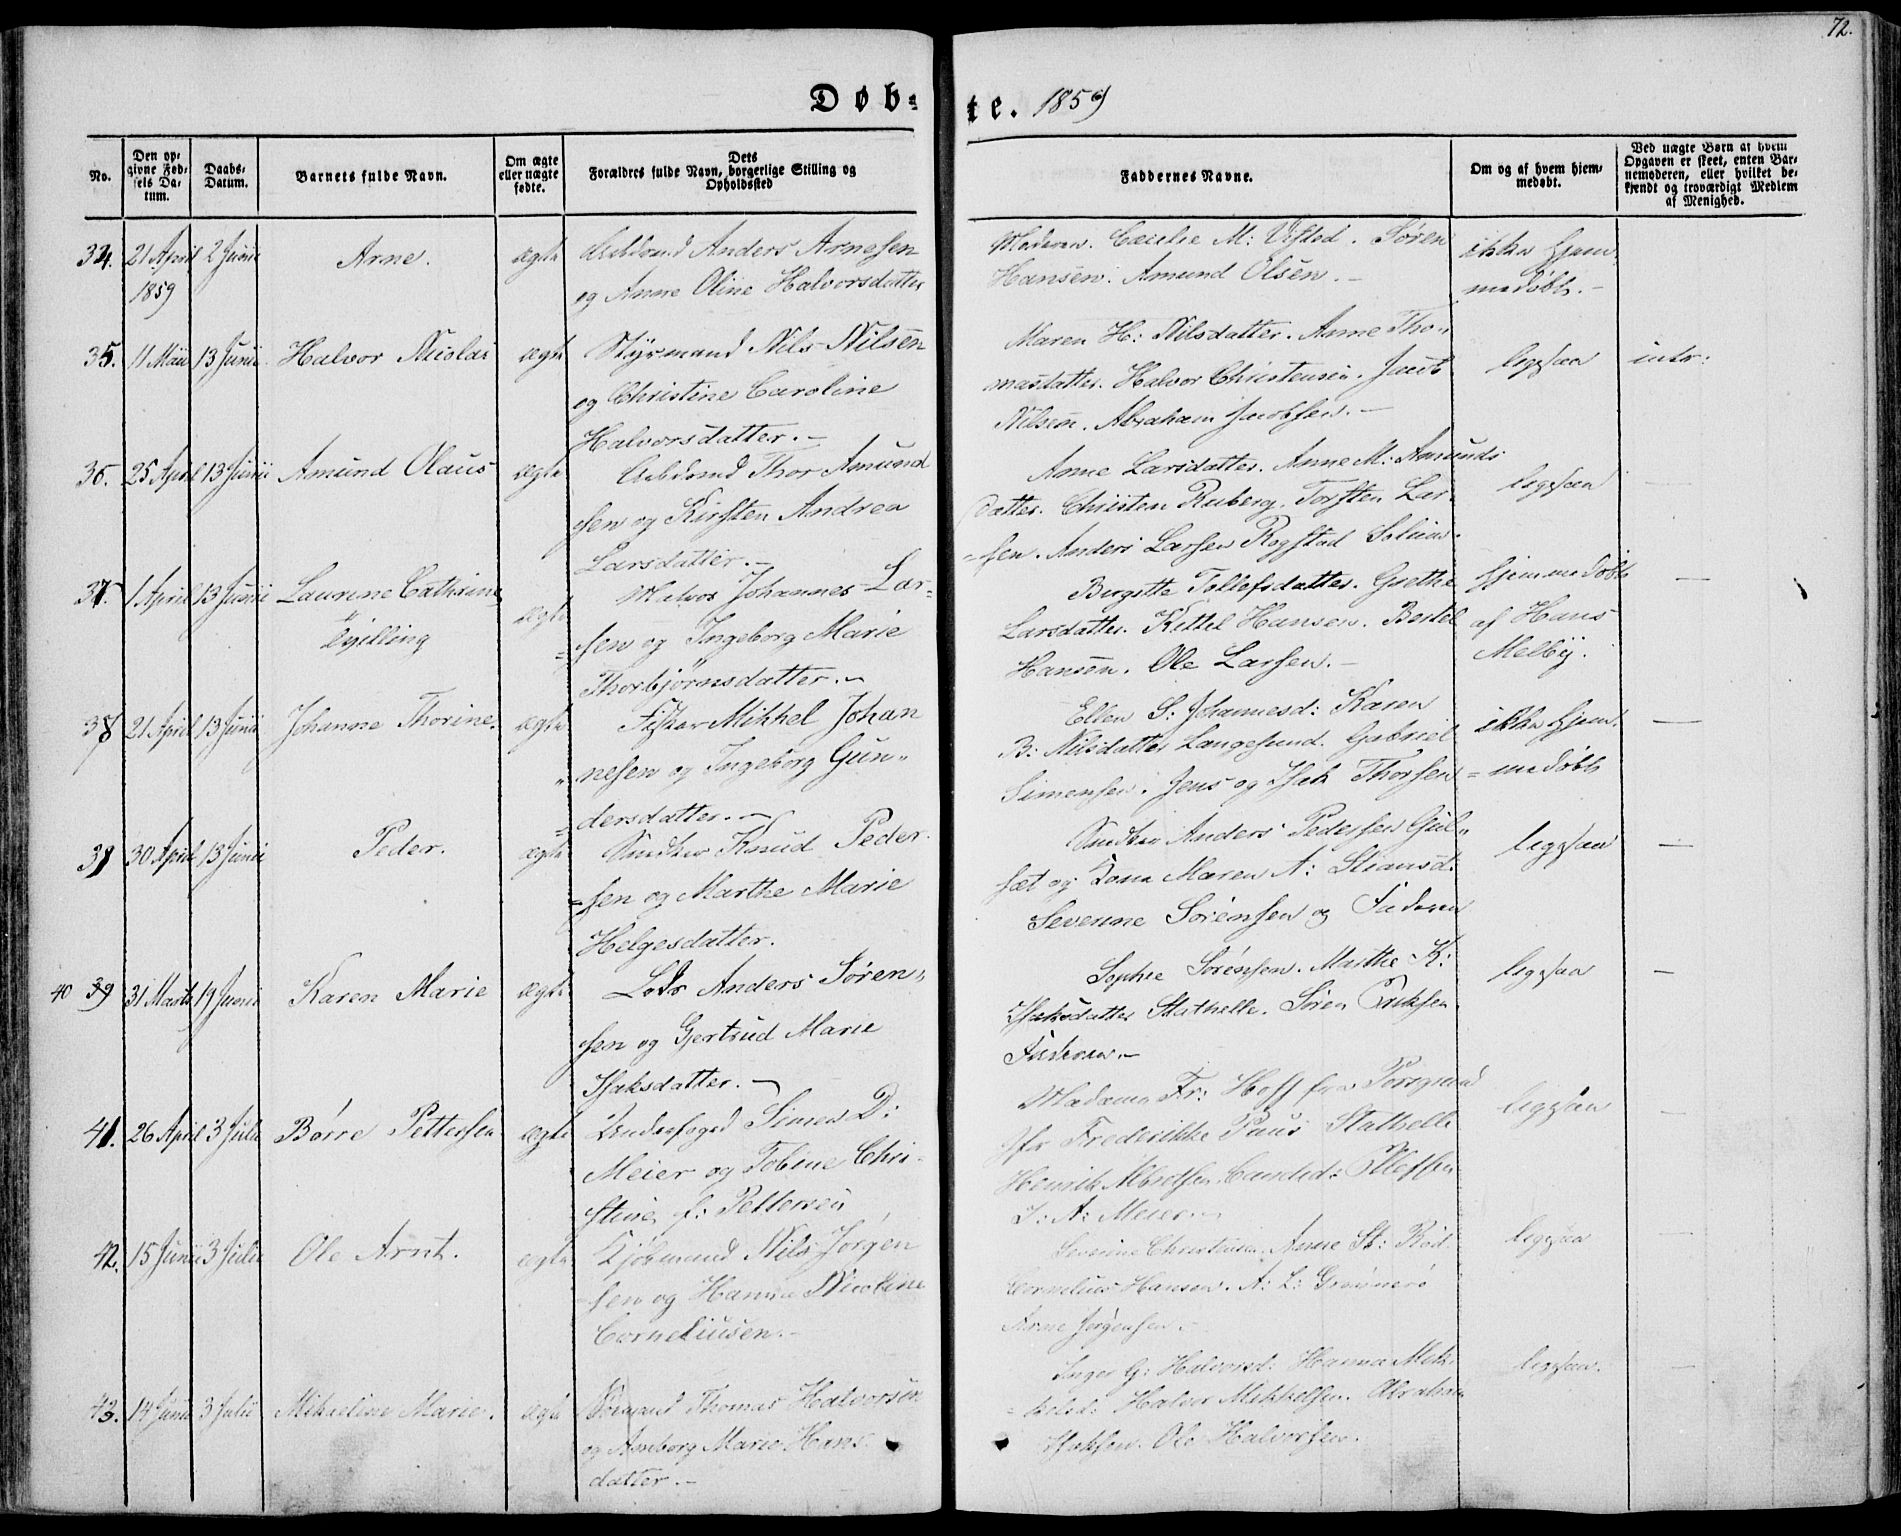 72.
Døb-
te. 1859
No.
Den op-
givne Fød-
sels Da-
tum.
Daabs-
Datum.
Barnets fulde Navn.
Om ægte
eller uægte
fødte.
Dets
Forældres fulde Navn, borgerlige Stilling og
Opholdssted
Faddernes Navne.
Om og af hvem hjem-
medøbt.
Ved uægte Børn af hvem
Opgaven er skeet, enten Bar-
nemoderen, eller hvilket be-
kjendt og troværdigt Medlem
af Menighed.
34. 21 April 2 Junii Arne. ægte Anders Arnesen
1859 og Anne Oline Halvorsdatter
Moderen. Cecilie M: Visted. Søren ikke hjem
Hansen. Amund Olsen. - medøbt. -
35. 11 Maii 13 Junii Halvor Nicolai ægte Styrmand Nils Nilsen
og Christine Caroline
Halvorsdatter. -
Maren H: Nilsdatter. Anne Tho-
masdatter. Halvor Christensen. Jacob ligesaa inter:
Nilsen. Abraham Jacobsen. -
36. 25 April 13 Junii Amund Olaus ægte Thor Amund
sen og Kirsten Andrea
Larsdatter. -
Anne Larsdatter. Anne M: Amunds
datter. Christen Ruberg. Torsten Lar- ligesaa
=sen. Anders Larsen Rogstad Solum.
37. 1 April 13 Junii Laurine Cathrine ægte Matros Johannes Lar-
Tvilling =sen og Ingeborg Marie
Thorbjørnsdatter. -
Birgitte Tollefsdatter. Grethe hjemmedøbt
Larsdatter. Kittel Hansen. Bertel af Hans
Hansen. Ole Larsen. - Melby.
38 21 April 13 Junii Johanne Thorine. ægte Fisker Mikkel Johan
nesen og Ingeborg Gun-
=dersdatter. -
Ellen S: Johannesd: Karen ikke hjem-
B: Nilsdatter Langesund. Gabriel =medøbt
Simensen. Jens og Isak Thorsen
39 30 April 13 Junii Peder. ægte Snedker Knud Peder
=sen og Marthe Marie
Helgesdatter.
Snedker Anders Pedersen Gul- ligesaa
sæt og Kona Maren A: Stiansd:
Severine Sørensen og Faderen
40 39 31 Marts 19 Junii Karen Marie ægte Lods Anders Søren-
sen og Gjertrud Marie
Isaksdatter. -
Sophie Sørensen. Marthe K: ligesaa
Isaksdatter Stathelle. Søren Eriksen
Faderen. -
41. 26 April 3 Julii Børre Pettersen ægte Underfoged Simen D:
Meier og Tobine Chri-
stine f: Pettersen
Madame Fr: Hoff fra Porsgrund ligesaa
Jfr Frederikke Paus Stathelle
Henrik Albretsen. Candid: Ellefsen
J: A: Meier. -
42. 15 Junii 3 Julii Ole Arnt. ægte Sjømand Nils Jørgen
sen og Hanna Nicoline
Corneliusen. -
Severine Christensen. Anne St: Rød. ligesaa
Cornelius Hansen. A: L:
Arne Jørgensen. -
43. 14 Junii 3 Julii Mikaeline Marie. ægte Thomas Halvorsen
og Anneborg Marie Hans
datter. -
Inger G: Halvorsd: Hanna Mik- ligesaa.
=kelsd: Halvor Mikkelsen. Abraham
Isaksen. Ole Halvorsen.